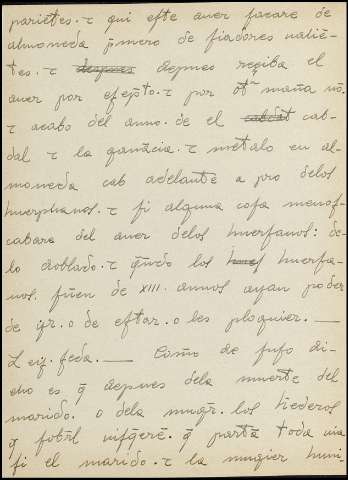 parientes. τ qui este auer sacare de
almoneda p̄mero de fiadores ualiē-
tes. τ despues depues reciba el
auer por escp̄to. τ por ot̄ maña nō.
τ acabo del anno. de el cab-
dal τ la ganãcia. τ metalo en al-
moneda cab adelante a pro delos
huerphanos. τ si alguna cosa menos-
cabare del auer delos huerfanos: de-
lo doblado. τ q̃ndo los huerfa-
nos. fūen de XIII. annos ayan poder
de yr. o de estar. o les ploguier. —
L ei9. seda. — Como de suso di-
cho es q̃ depues dela muerte del
marido. o dela mugr̄. los h̄ederos
q̃ sob̄l uisq̃erē. q̃ partā toda uia
si el marido. τ la mugier huui-